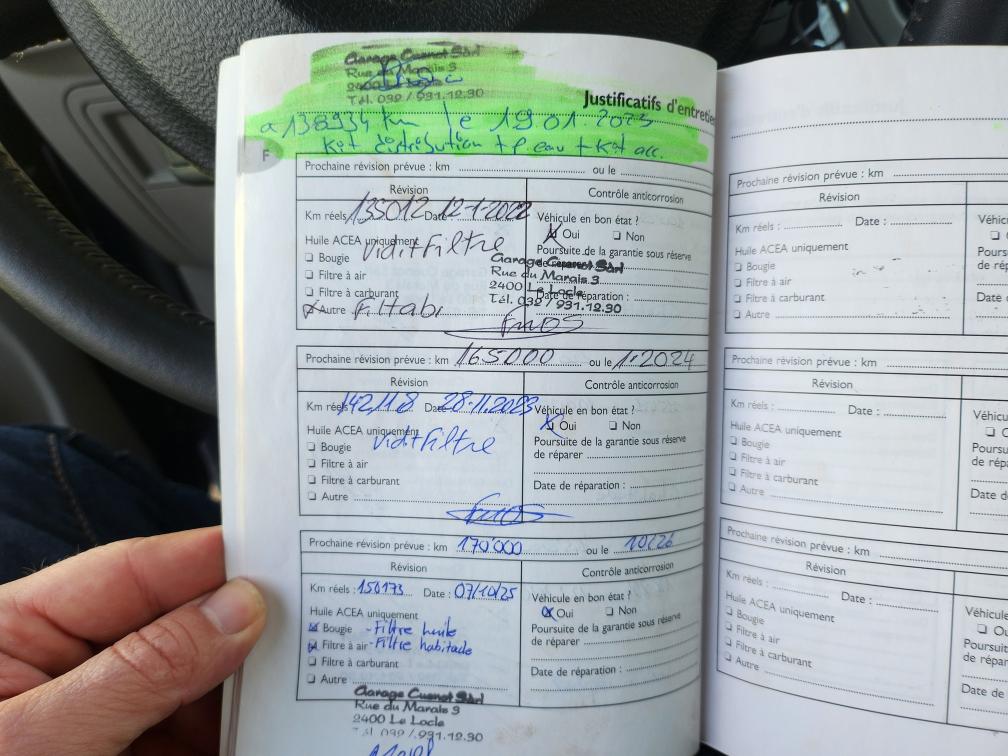 Garage Cuenot Sàrl
Rue du Marais 3
2400 Le Locle
Tél. 032 / 931.12.30
Justificatifs d'entretie
a 138934 km le 19.01.2023
Kit distribution + P. eau + Kit acc.
F
Prochaine révision prévue : km ou le
Révision Contrôle anticorrosion
Km réels 135012 Date 12-1-2022
Huile ACEA uniquement Vid+Filtre
Bougie
Filtre à air
Filtre à carburant
Autre F. Habi
Véhicule en bon état ?
Oui Non
Poursuite de la garantie sous réserve
Garage Cuenot Sàrl
Rue du Marais 3
2400 Le Locle
Date de réparation :
Tél. 032 / 931.12.30
Prochaine révision prévue : km 165000 ou le 1.2024
Révision Contrôle anticorrosion
Km réels 142118 Date 28-11.2023
Huile ACEA uniquement Vid+Filtre
Bougie
Filtre à air
Filtre à carburant
Autre
Véhicule en bon état ?
Oui Non
Poursuite de la garantie sous réserve
de réparer
Date de réparation :
Prochaine révision prévue : km 170'000 ou le 10/26
Révision Contrôle anticorrosion
Km réels : 150173 Date : 07/10/25
Huile ACEA uniquement
Bougie - Filtre huile
Filtre à air - Filtre habitacle
Filtre à carburant
Autre
Véhicule en bon état ?
Oui Non
Poursuite de la garantie sous réserve
de réparer
Date de réparation :
Garage Cuenot Sàrl
Rue du Marais 3
2400 Le Locle
Tél. 032 / 931.12.30
Prochaine révision prévue : km
Révision
Km réels : Date :
Huile ACEA uniquement
Bougie
Filtre à air
Filtre à carburant
Autre
Véhicu
Poursu
de répa
Date de
Prochaine révision prévue : km
Révision
Km réels : Date :
Huile ACEA uniquement
Bougie
Filtre à air
Filtre à carburant
Autre
Véhicu
Poursu
de répa
Date d
Prochaine révision prévue : km
Révision
Km réels : Date :
Huile ACEA uniquement
Bougie
Filtre à air
Filtre à carburant
Autre
Véhicu
Poursu
de répa
Date de